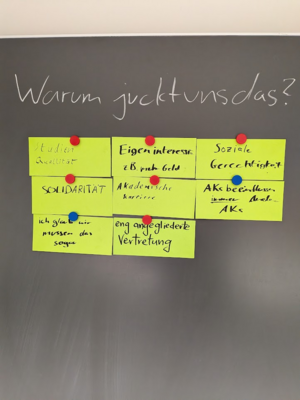 Warum juckt uns das?
Studien
Qualität
Eigeninteresse
z.B. mehr Geld
Soziale
Gerechtigkeit
SOLIDARITÄT
Akademische
Karriere
AKs beeinflussen
immer
AKs
ich glaube wir
müssen das
sogar
eng angegliederte
Vertretung